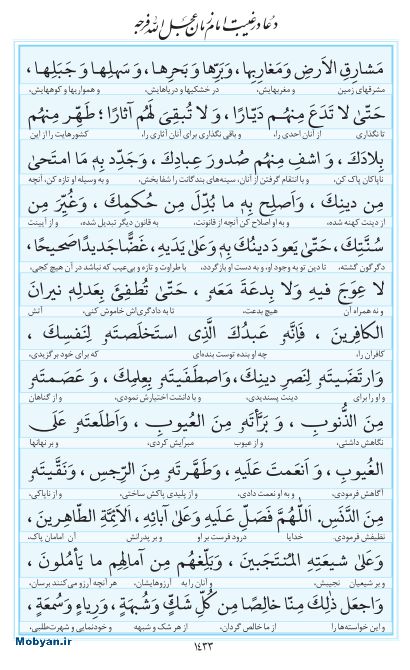 دعا در غیبت امام زمان عجل الله فرجه
مَشارِقِ الاَرضِ وَمَغارِبِها، وَبَرِّها وَبَحرِها، وَسَهلِها وَجَبَلِها،
مشرقهای زمین و مغربهایش، در خشکیها و دریاهایش، و همواریها و کوههایش،
حَتّیٰ لا تَدَعَ مِنهُم دَیّارًا، وَ لا تُبقِیَ لَهُم آثارًا؛ طَهِّر مِنهُم
تا نگذاری از آنان احدی را، و باقی نگذاری برای آنان آثاری را، کشورهایت را از این
بِلادَكَ، وَ اشفِ مِنهُم صُدورَ عِبادِكَ، وَجَدِّد بِهِ مَا امتَحیٰ
ناپاکان پاک کن، و با انتقام گرفتن از آنان، سینه‌های بندگانت را شفا بخش، و به وسیله او تازه کن، آنچه
مِن دینِكَ، وَاَصلِح بِهِ ما بُدِّلَ مِن حُكمِكَ، وَغُیِّرَ مِن
از دینت کهنه شده، و به او اصلاح کن آنچه از قانونت، به قانون دیگر تبدیل شده، و از آیینت
سُنَّتِكَ، حَتّیٰ یَعودَ دینُكَ بِهِ وَعَلیٰ یَدَیهِ، غَضًّا جَدیدًا صَحیحًا،
دگرگون گشته، تا دین تو به وجود او، و به دست او بازگردد، با طراوت و تازه و بی‌عیب که نباشد در آن هیچ کجی،
لا عِوَجَ فیهِ وَلا بِدعَةَ مَعَهُ، حَتّیٰ تُطفِئَ بِعَدلِهِ نیرانَ
و نه همراه آن هیچ بدعت، تا به دادگری‌اش خاموش کنی، آتش
الكافِرینَ، فَاِنَّهُ عَبدُكَ الَّذِی استَخلَصتَهُ لِنَفسِكَ،
کافران را، چه او بنده توست بنده‌ای که برای خود برگزیدی،
وَارتَضَیتَهُ لِنَصرِ دینِكَ، وَاصطَفَیتَهُ بِعِلمِكَ، وَ عَصَمتَهُ
و او را برای دینت پسندیدی، و با دانشت اختیارش نمودی، و از گناهان
مِنَ الذُّنوبِ، وَ بَرَّأتَهُ مِنَ العُیوبِ، وَاَطلَعتَهُ عَلَی
نگاهش داشتی، و از عیوب مبرّایش کردی، و بر نهانها
الغُیوبِ، وَ اَنعَمتَ عَلَیهِ، وَطَهَّرتَهُ مِنَ الرِّجسِ، وَنَقَّیتَهُ
آگاهش فرمودی، و به او نعمت دادی، و از پلیدی پاکش ساختی، و از ناپاکی،
مِنَ الدَّنَسِ. اَللّٰهُمَّ فَصَلِّ عَلَیهِ وَعَلیٰ آبائِهِ، الاَئِمَّةِ الطّاهِرینَ،
نظیفش فرمودی. خدایا درود فرست بر او و بر پدرانش آن امامان پاک،
وَعَلیٰ شیعَتِهِ المُنتَجَبینَ، وَبَلِّغهُم مِن آمالِهِم ما یَأمُلونَ،
و بر شیعیان نجیبش، و آنان را به آرزوهایشان، هر آنچه آرزو می‌کنند برسان،
وَاجعَل ذٰلِكَ مِنّا خالِصًا مِن كُلِّ شَكٍّ وَشُبهَةٍ، وَرِیاءٍ وَسُمعَةٍ،
و این خواسته‌ها را از ما خالص گردان، از هر شک و شبهه و خودنمایی و شهرت‌طلبی،
۱۴۳۳
Mobyan.ir